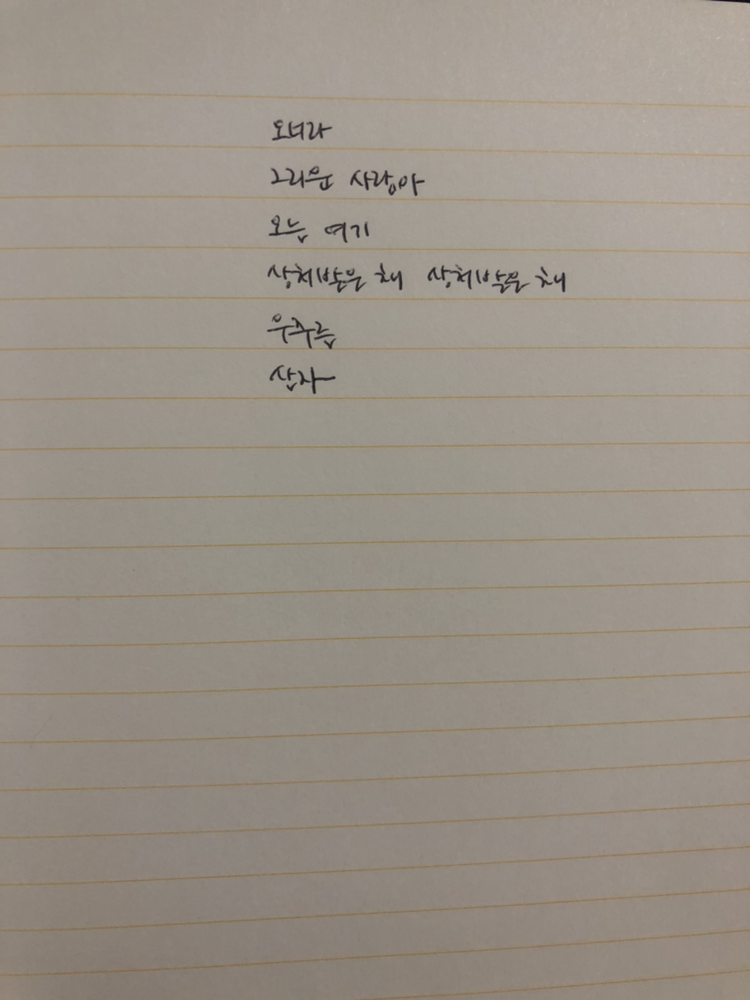 오너라
그리운 사람아
오늘 여기
상처받은 채 상처받은 채
우주를
살자